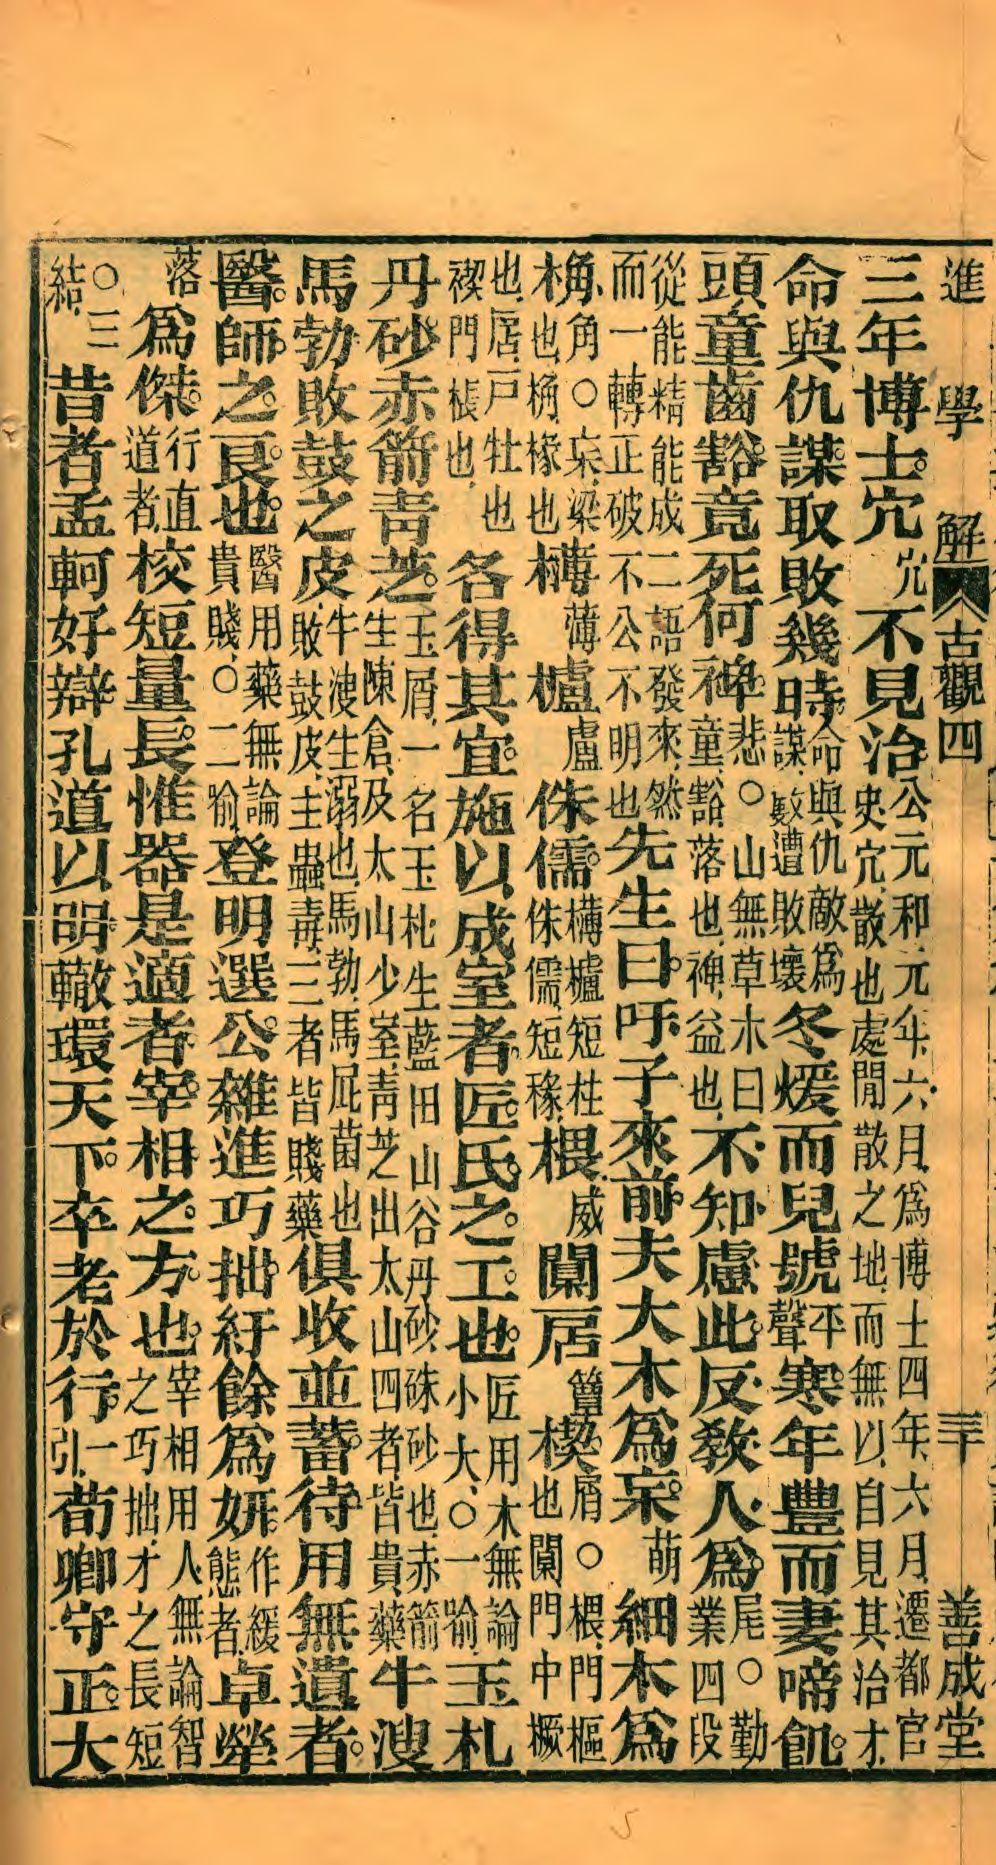 進學解 古觀四 三十 善成堂
三年博士冗冗不見治公元和元年六月爲博士四年六月遷都官史冗散也處閒散之地而無以自見其治才
命與仇謀取敗幾時命與仇敵爲謀數遭敗壞冬煖而兒號平聲寒年豐而妻啼飢
頭童齒豁竟死何裨悲○山無草木曰童豁落也裨益也不知慮此反教人爲尾○勤業四段
從能精能成二語發來然而一轉正破不公不明也先生曰吁子來前夫大木爲杗萌細木爲
桷角○杗梁也桷椽也欂薄櫨盧侏儒欂櫨短柱侏儒短椽椳威闑扂簟楔屑○椳門樞也闑門中橛
也扂戶牡也楔門棖也各得其宜施以成室者匠氏之工也匠用木無論小大○一喻玉札
丹砂赤箭青芝玉屑一名玉札生藍田山谷丹砂硃砂也赤箭生陳倉及太山少室青芝出太山四者皆貴藥牛溲
馬勃敗鼓之皮牛溲生溺也馬勃馬屁菌也敗鼓皮主蟲毒三者皆賤藥俱收並蓄待用無遺者
醫師之良也醫用藥無論貴賤○二喻登明選公雜進巧拙紆餘爲妍作緩態者卓犖
落爲傑行直道者校短量長惟器是適者宰相之方也宰相用人無論智之巧拙才之長短
○三結昔者孟軻好辯孔道以明轍環天下卒老於行一引荀卿守正大